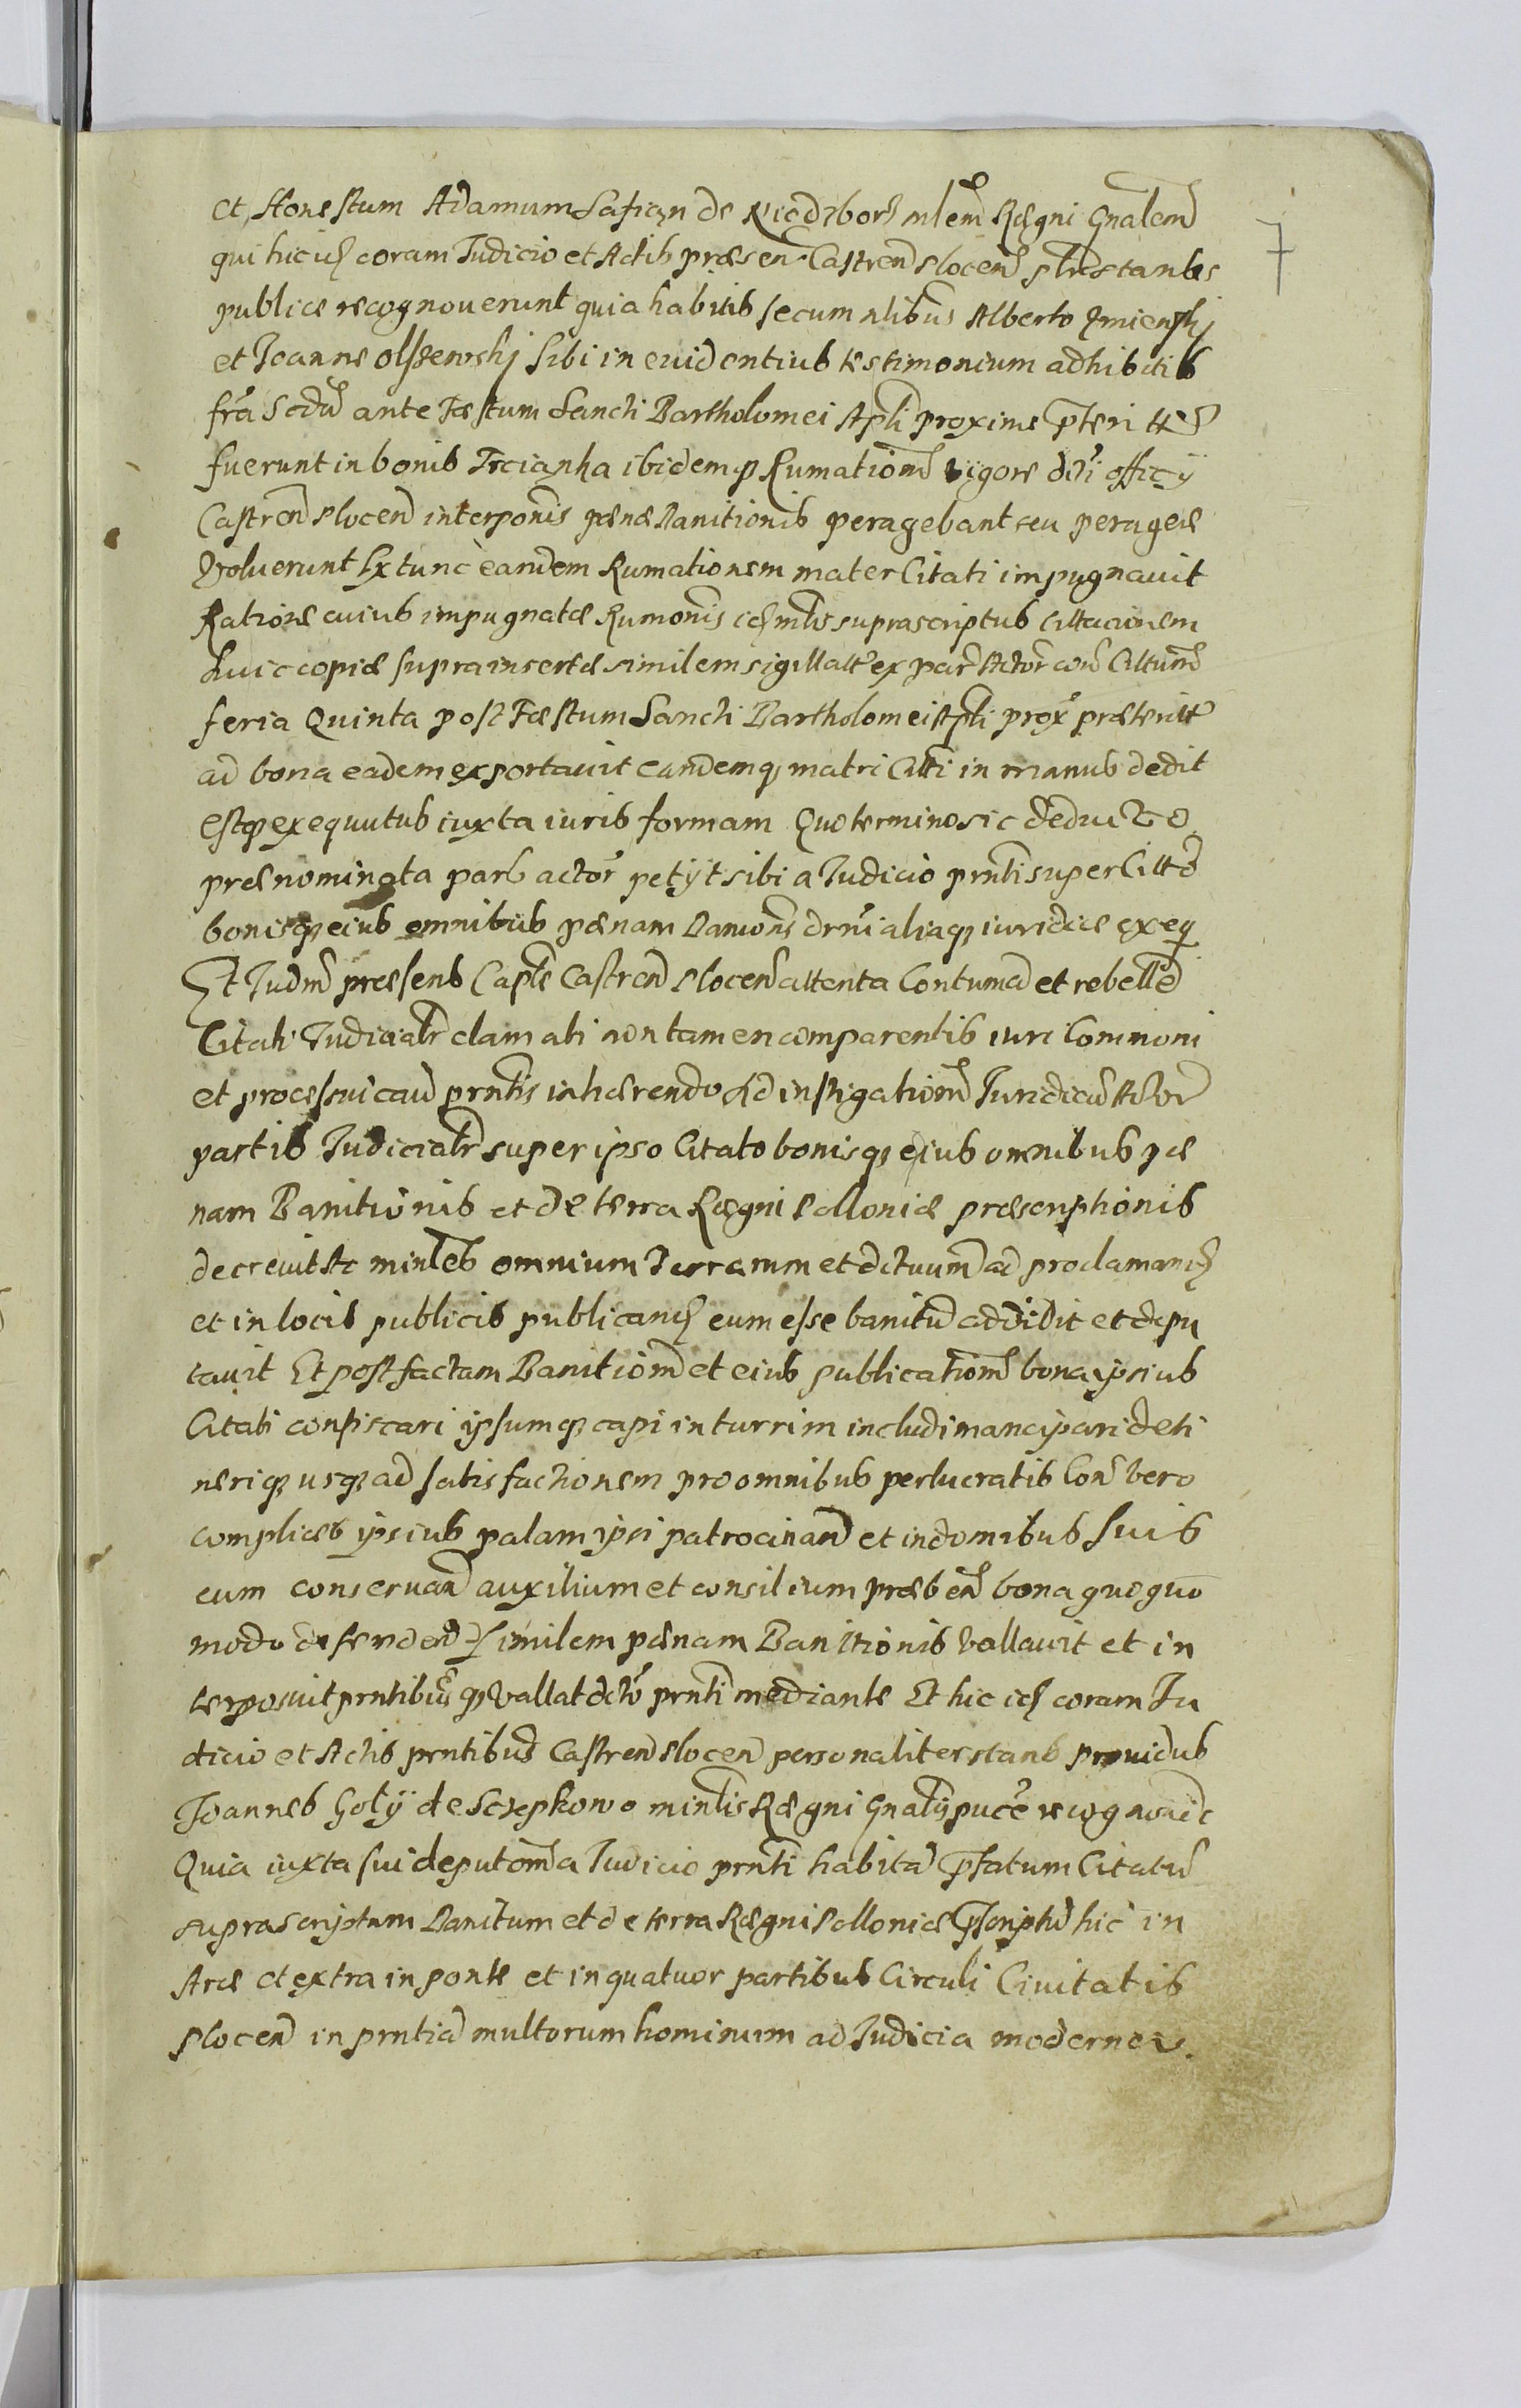 et Honestum Adamum Lasiczn de Niedzborz mlem Regni Gnalem
qui hic iq coram Iudicio et Actib praesen Castren Plocen plr stantes
publice recognoverunt quia habitis secum nlibus Alberto Zmienski
et Joanne olszewskj sibi in evidentius testimonium adhibitis
fra Scda ante Faestum Sancti Bartholomei Apli proxime pteritt
fuerunt in bonis Trcianka ibidemq Rumationem vigore dicti officij
Castren Plocen interponis paenae Banitionis peragebant seu peragere
voluerunt Extunc eandem Rumationem mater Citati impugnavit
Ratione cuius impugnatae Rumonis iq mlis suprascriptus Cittacionem
huic copiae supra insertae similem sigillatt ex par Actor con Cittum
feria Quinta post Faestum Sancti Bartholomei Apli prox praeteritt
ad bona eadem exportavit eandemq matri Citti in manus dedit
estq exequutus iuxta iuris formam Quo termino sic deducto
praenominata pars actor petijt sibi a Iudicio prnti super Citto
bonisq eius omnibus paenam Banionis drni aliaq iuridice exeq
Et Iudm praesens Caple Castren Plocen attenta Contumac et rebelle
Citati Iudicialr clamati non tamen comparentis iuri Commoni
et processui caus prntis inhaerendo Ad instigationem Iuridica Actor
partis Iudicialr super ipso Citato bonisq eius omnibus pae
nam Banitionis et de terra Raegni Polloniae praescriptionis
decrevit Ac minles omnium Terrarum et dctuum ad proclamand
et in locis publicis publicand eum esse banitu addidit et depu
tavit Et post factam Banitionem et eius publicationem bona ipsius
Citati confiscari ipsumq capi in turrim includi mancipari deti
neriq usq ad satisfactionem pro omnibus perlucratis Con vero
complices ipsius palam ipsi patrocinan et in domibus suis
eum conservan auxilium et consilium praeben bona quoquo
modo defenden similem paenam Banitionis vallavit et in
terposuit prntibus q vallat dcto prnti mediante Et hic iq coram Iu
dicio et Actis prntibus Castren Plocen personaliter stans providus
Joannes Goly de Sczepkowo minlis Raegni Gnalis puce recognovit
Quia iuxta sui deputom a Iudicio prnti habita pfatum Citatum
suprascriptum Banitum et de terra Raegni Polloniae pscriptu hic in
Arce et extra in ponte et in quatuor partibus Circuli Civitatis
Plocen in prntia multorum hominum ad Iudicia moderna